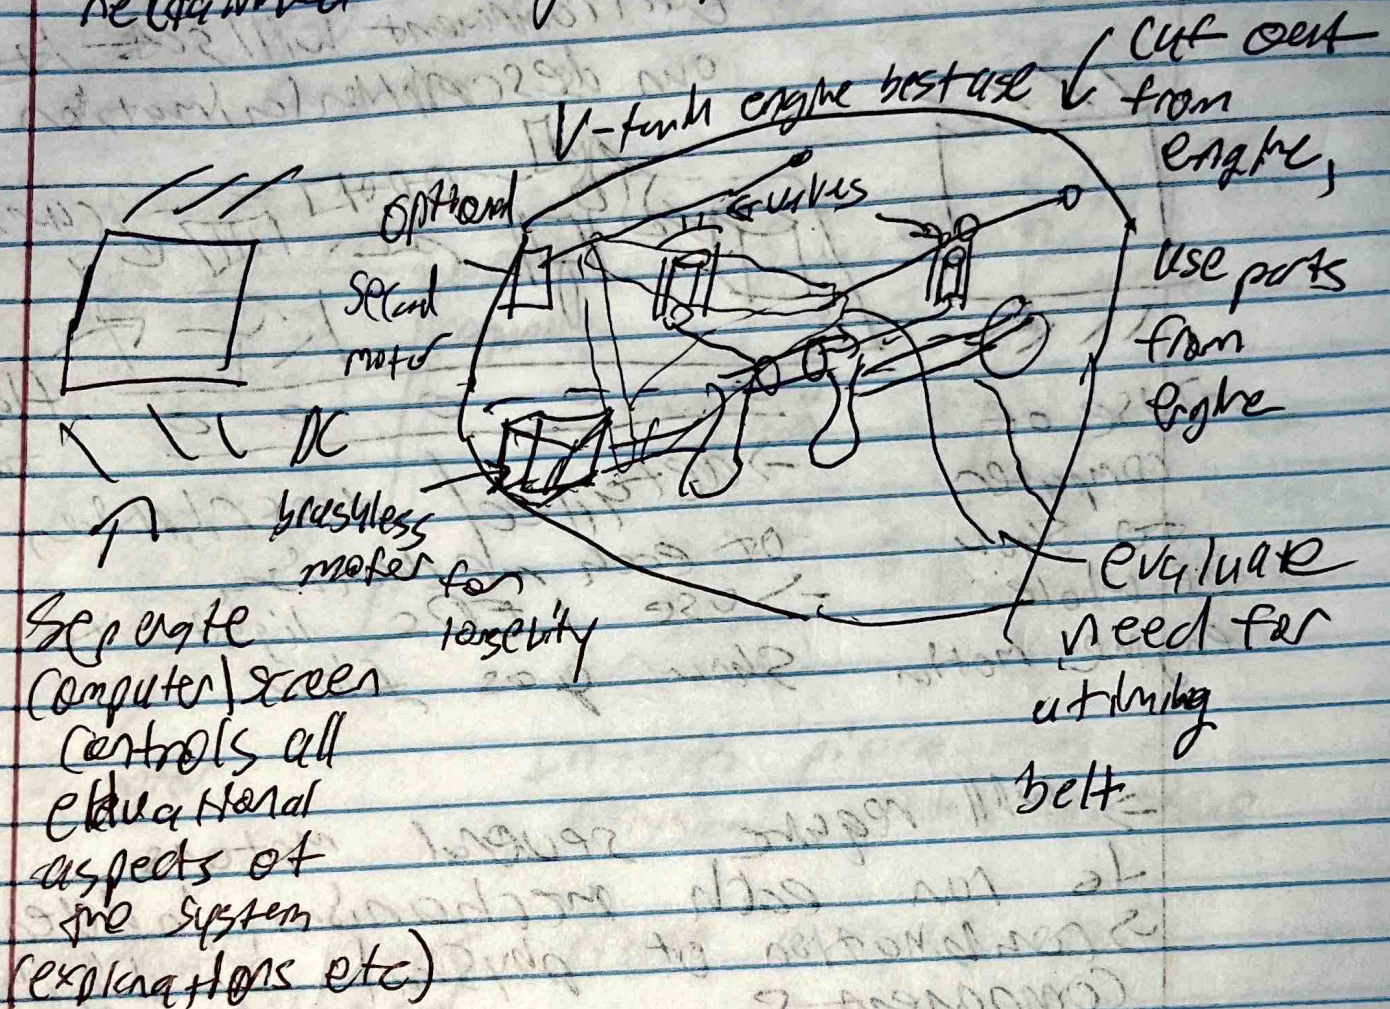 V-tank engine best use
cut out
from
engine,
use parts
from
engine
optional
second
motor
valves
DC
brushless
motor for
longevity
evaluate
need for
a timing
belt
Seperate
computer/screen
controls all
educational
aspects of
the system
(explanations etc)